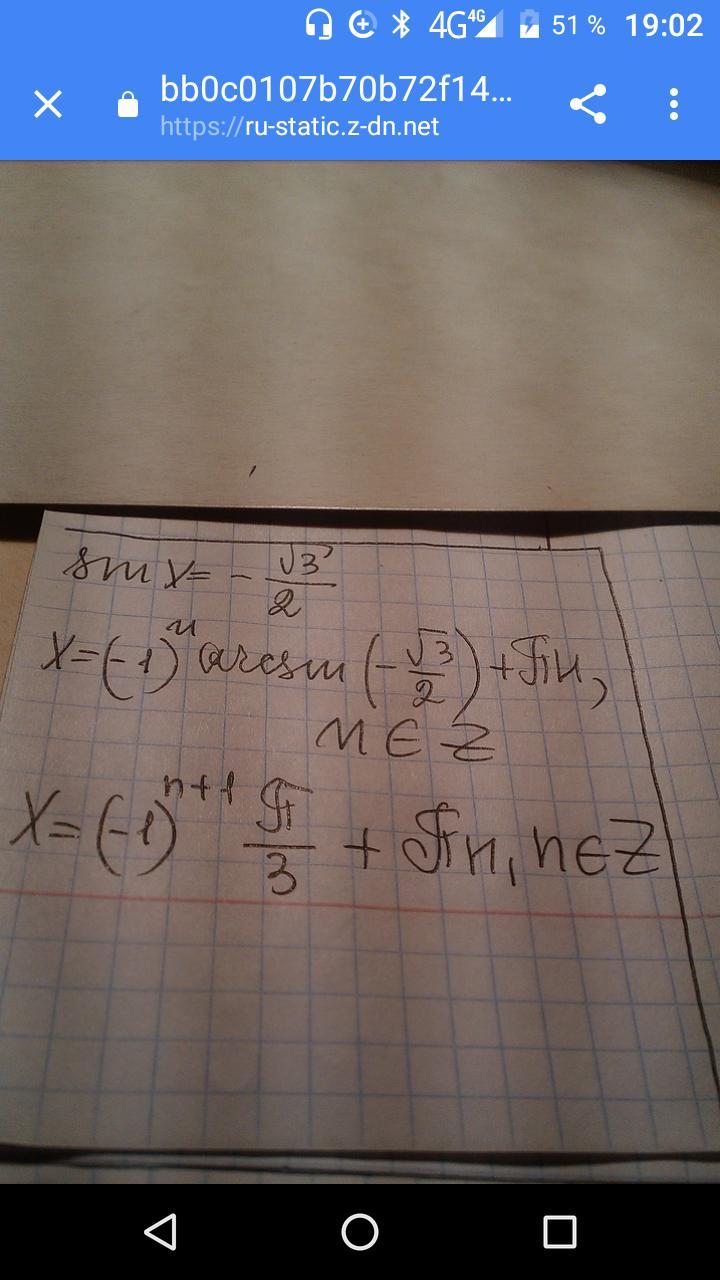 4G 4G 51 % 19:02
bb0c0107b70b72f14...
https://ru-static.z-dn.net
sin x = - √3/2
x = (-1)ⁿ arcsin (- √3/2) + πn,
n ∈ Z
x = (-1)ⁿ⁺¹ π/3 + πn, n ∈ Z